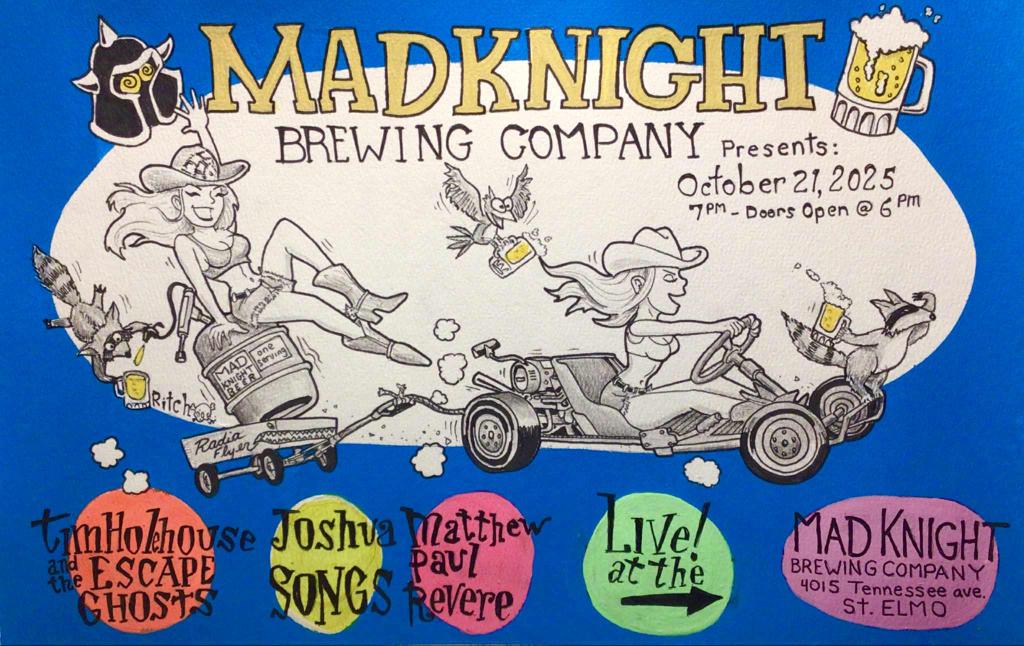 MADKNIGHT
BREWING COMPANY
Presents:
October 21, 2025
7PM - Doors Open @ 6PM
MAD
KNIGHT
BEER
one
serving
Radia
Flyer
Tim Holehouse
and the ESCAPE
GHOSTS
Joshua
SONGS
Matthew
Paul
Revere
LIVE!
at the
MAD KNIGHT
BREWING COMPANY
4015 Tennessee ave.
ST. ELMO